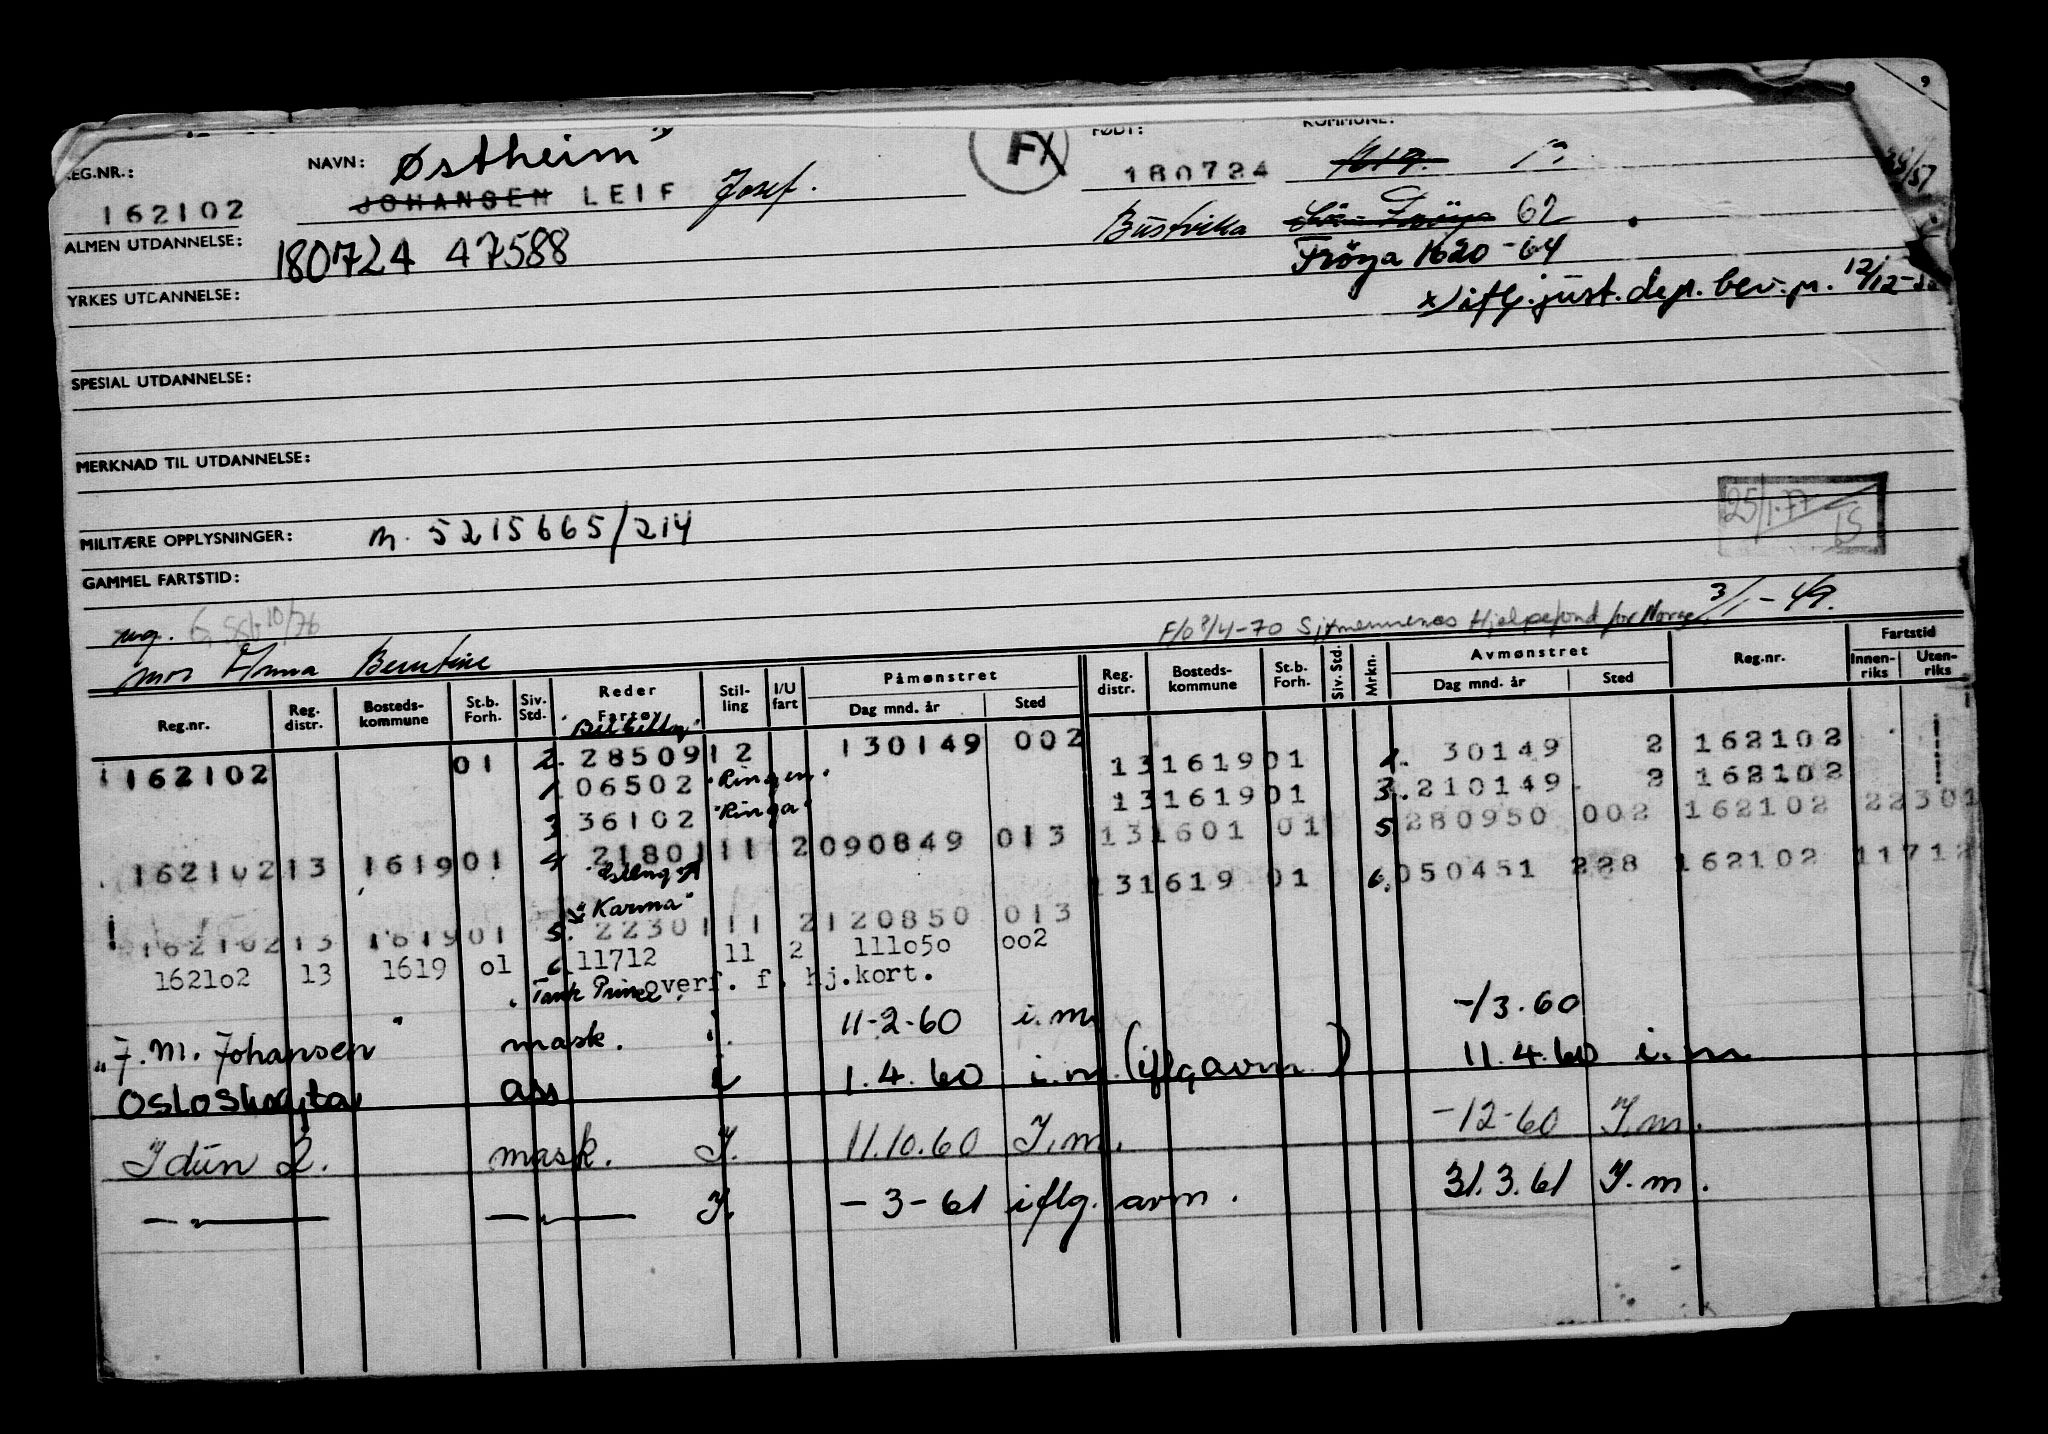 EG.NR.:
162102
NAVN: Østheim x)
JOHANSEN LEIF Josef.
FX
FØDT:
180724
KOMMUNE:
Bustvika
62
Frøya 1620 -64
x) iflg. just. dep. bev. pr. 12/12-
ALMEN UTDANNELSE:
180724 47588
YRKES UTDANNELSE:
SPESIAL UTDANNELSE:
MERKNAD TIL UTDANNELSE:
25/1.77
MILITÆRE OPPLYSNINGER: m. 5215665/214
GAMMEL FARTSTID:
ug.
F/o 8/4-70 Sjømennenes Hjelpefond for Norge 3/1-49.
mor Anna Berntine
Reg.nr. Reg. distr. Bosteds-kommune St.b. Forh. Siv. Std. Reder Fartøy Stil-ling I/U fart Påmønstret Dag mnd. år Sted Reg. distr. Bosteds-kommune St.b. Forh. Siv. Std. Mrkn. Avmønstret Dag mnd. år Sted Reg.nr. Fartstid Innen-riks Uten-riks
162102 01 2. 28509 12 130149 002 13 1619 01 1. 30149 2 162102
1 06502 "Ringen" 13 1619 01 3. 210149 2 162102
3 36102 "Ringa" 13 1601 01 5 280950 002 162102 22301
162102 13 1619 01 4 21801 11 2 090849 013 131619 01 6. 050451 228 162102 11712
"Karma"
162102 13 1619 01 5. 22301 11 2 120850 013
162102 13 1619 01 6. 11712 11 2 111050 002
"Tank Prince" overf. f. hj.kort.
"J.M. Johansen mask. i. 11-2-60 i.m -/3.60
Osloskøyta ass i 1.4.60 i.m. (iflg avm) 11.4.60 i.m
Idun 2. mask. I. 11.10.60 I.m. -12-60 I.m.
— " — — " — I. - 3 - 61 iflg. avm. 31.3.61 I.m.